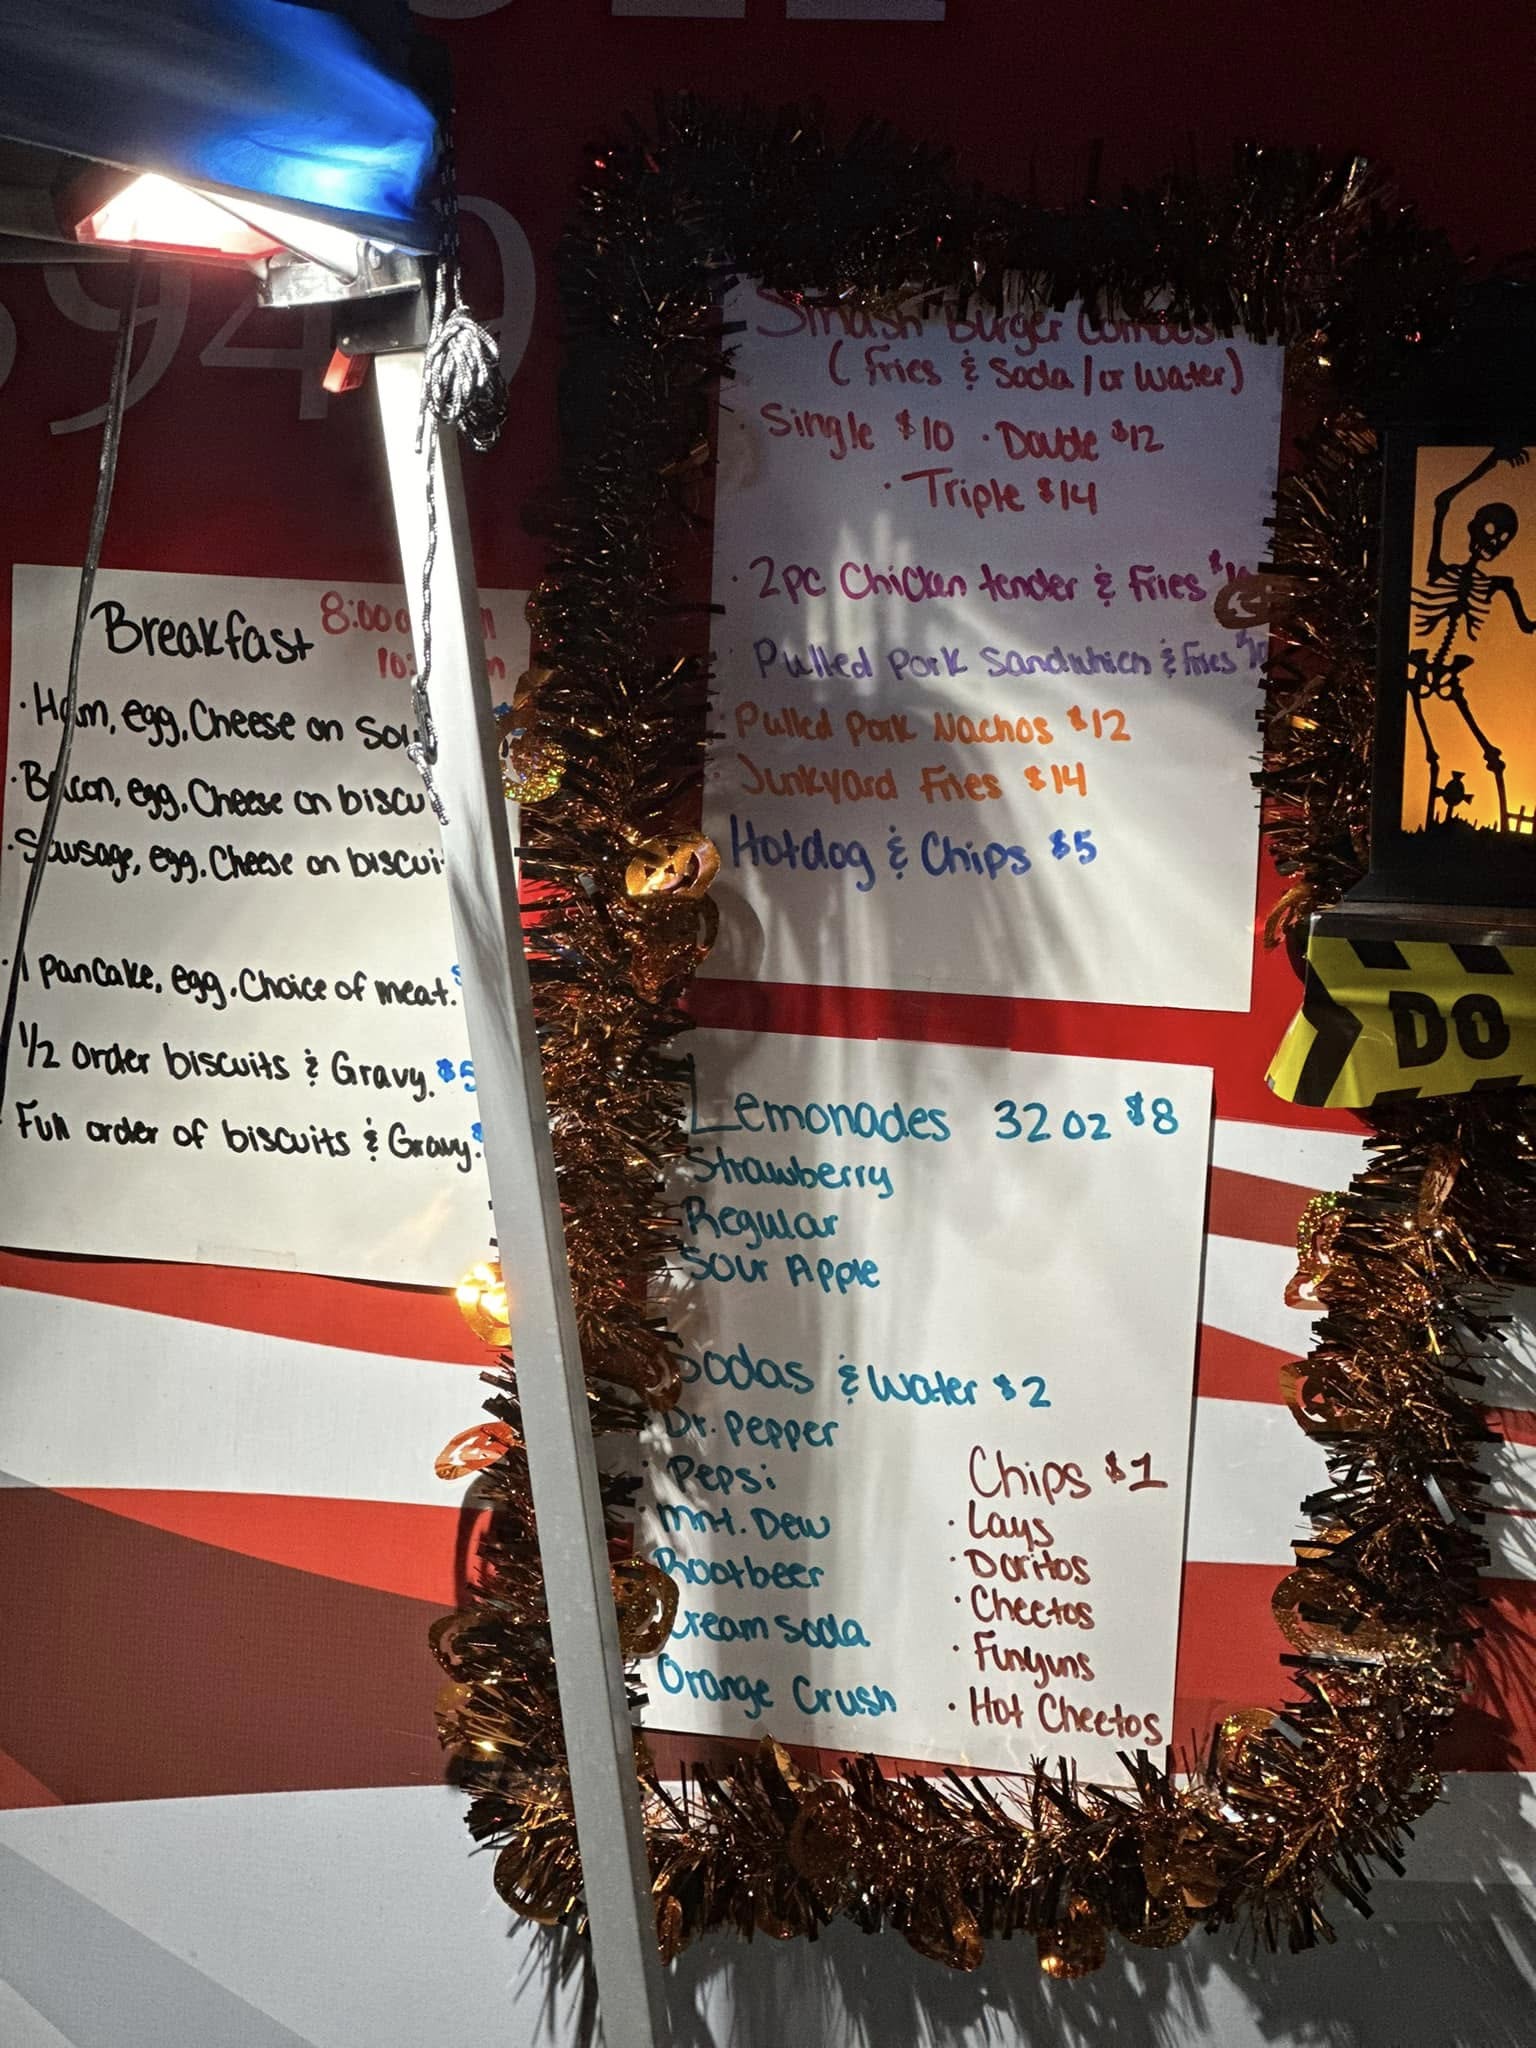 Breakfast
Ham, egg, Cheese on
Bacon, egg, Cheese on
Sausage, egg, Cheese on
1 pancake, egg, Choice of meat.
1/2 order biscuits & Gravy. $5
Full order of biscuits & Gravy.
Smash Burger Combos
(Fries & Soda/or Water)
· Single $10 · Double $12
· Triple $14
· 2pc Chicken tender & Fries
· Pulled Pork Sandwhich & Fries
· Pulled Pork Nachos $12
· Junkyard Fries $14
Hotdog & Chips $5
Lemonades 32oz $8
Strawberry
Regular
Sour Apple
Sodas & Water $2
Dr. Pepper
· Pepsi
· Mnt. Dew
Rootbeer
Cream Soda
Orange Crush
Chips $1
· Lays
· Doritos
· Cheetos
· Funyuns
· Hot Cheetos
DO